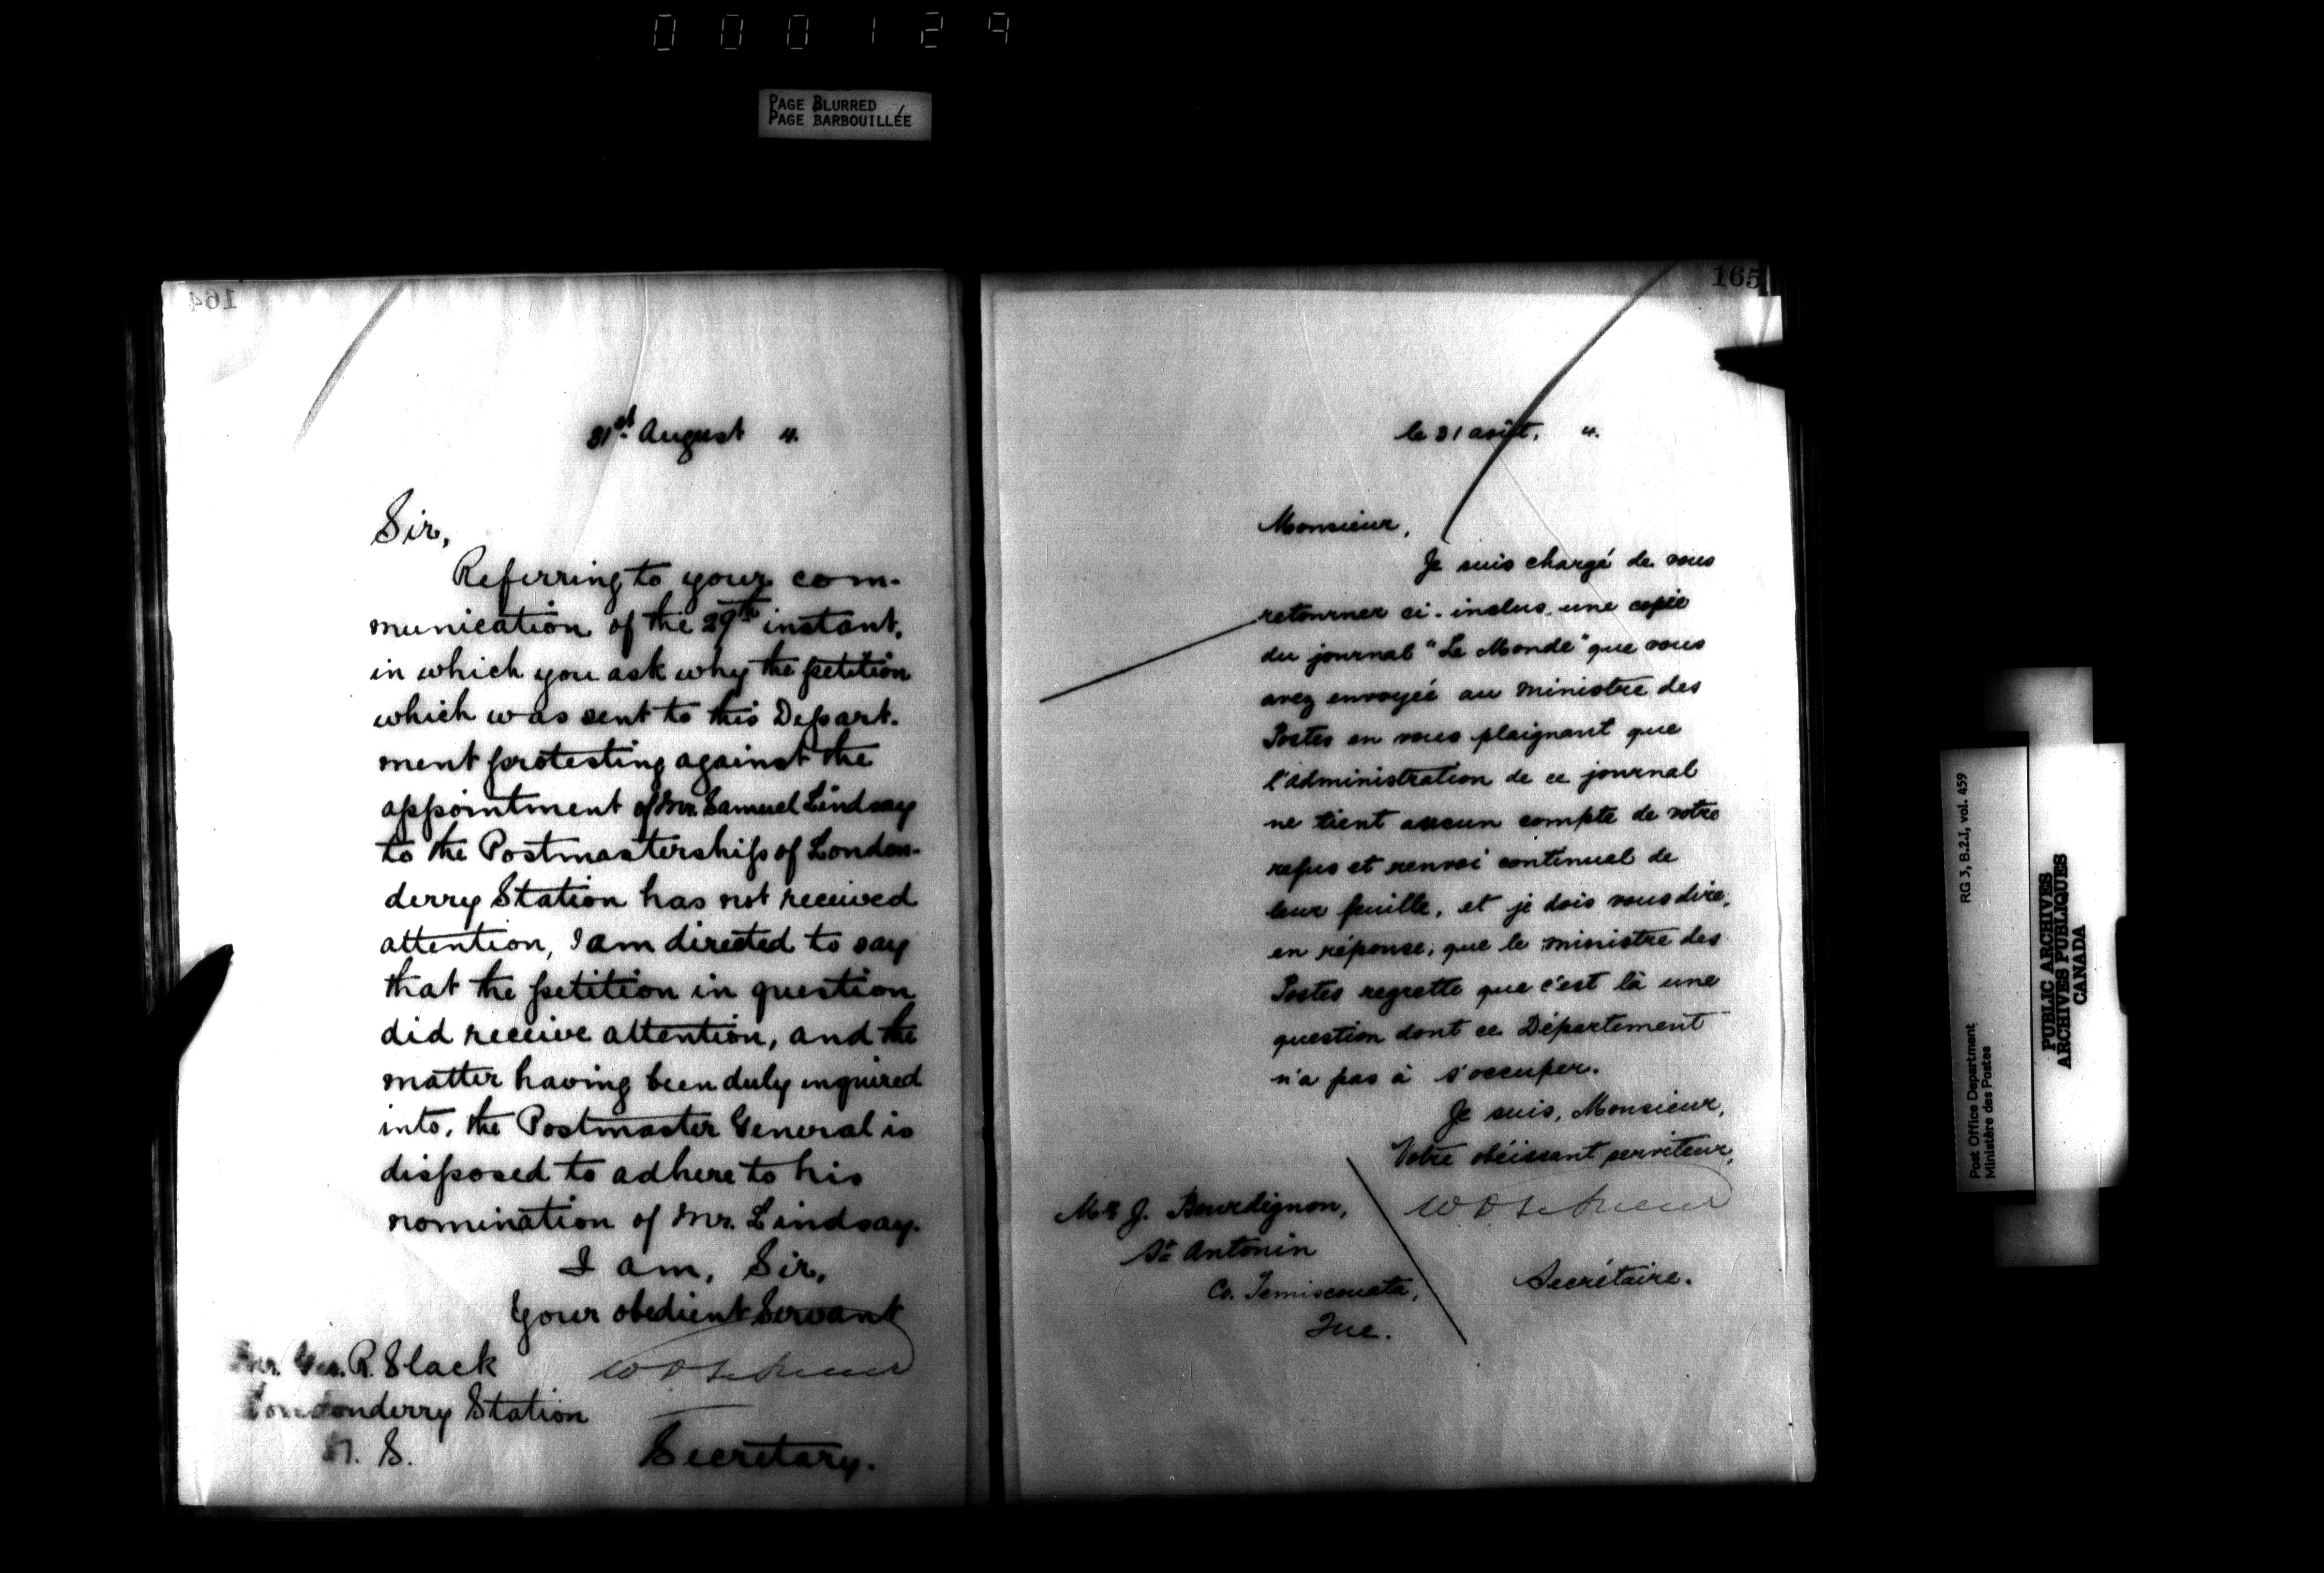 000129
PAGE BLURRED
PAGE BARBOUILLÉE
164
31st August 4.
Sir,
Referring to your com-
munication of the 29th instant,
in which you ask why the petition
which was sent to this Depart-
ment protesting against the
appointment of Mr. Samuel Lindsay
to the Postmastership of London-
derry Station has not received
attention, I am directed to say
that the petition in question
did receive attention, and the
matter having been duly inquired
into, the Postmaster General is
disposed to adhere to his
nomination of Mr. Lindsay.
I am, Sir,
Your obedient Servant
R. Slack
Londonderry Station
N. S.
Secretary.
165
le 31 août, 4.
Monsieur,
Je suis chargé de vous
retourner ci-inclus une copie
du journal "Le Monde" que vous
avez envoyée au ministre des
Postes en vous plaignant que
l'administration de ce journal
ne tient aucun compte de votre
refus et renvoi continuel de
leur feuille, et je dois vous dire,
en réponse, que le ministre des
Postes regrette que c'est là une
question dont ce Département
n'a pas à s'occuper.
Je suis, Monsieur,
Votre obéissant serviteur,
Mr J. Bourdignon,
St Antonin
Co. Temiscouata,
Que.
Secrétaire.
Post Office Department
Ministère des Postes
RG 3, B.2.I, vol. 459
PUBLIC ARCHIVES
ARCHIVES PUBLIQUES
CANADA